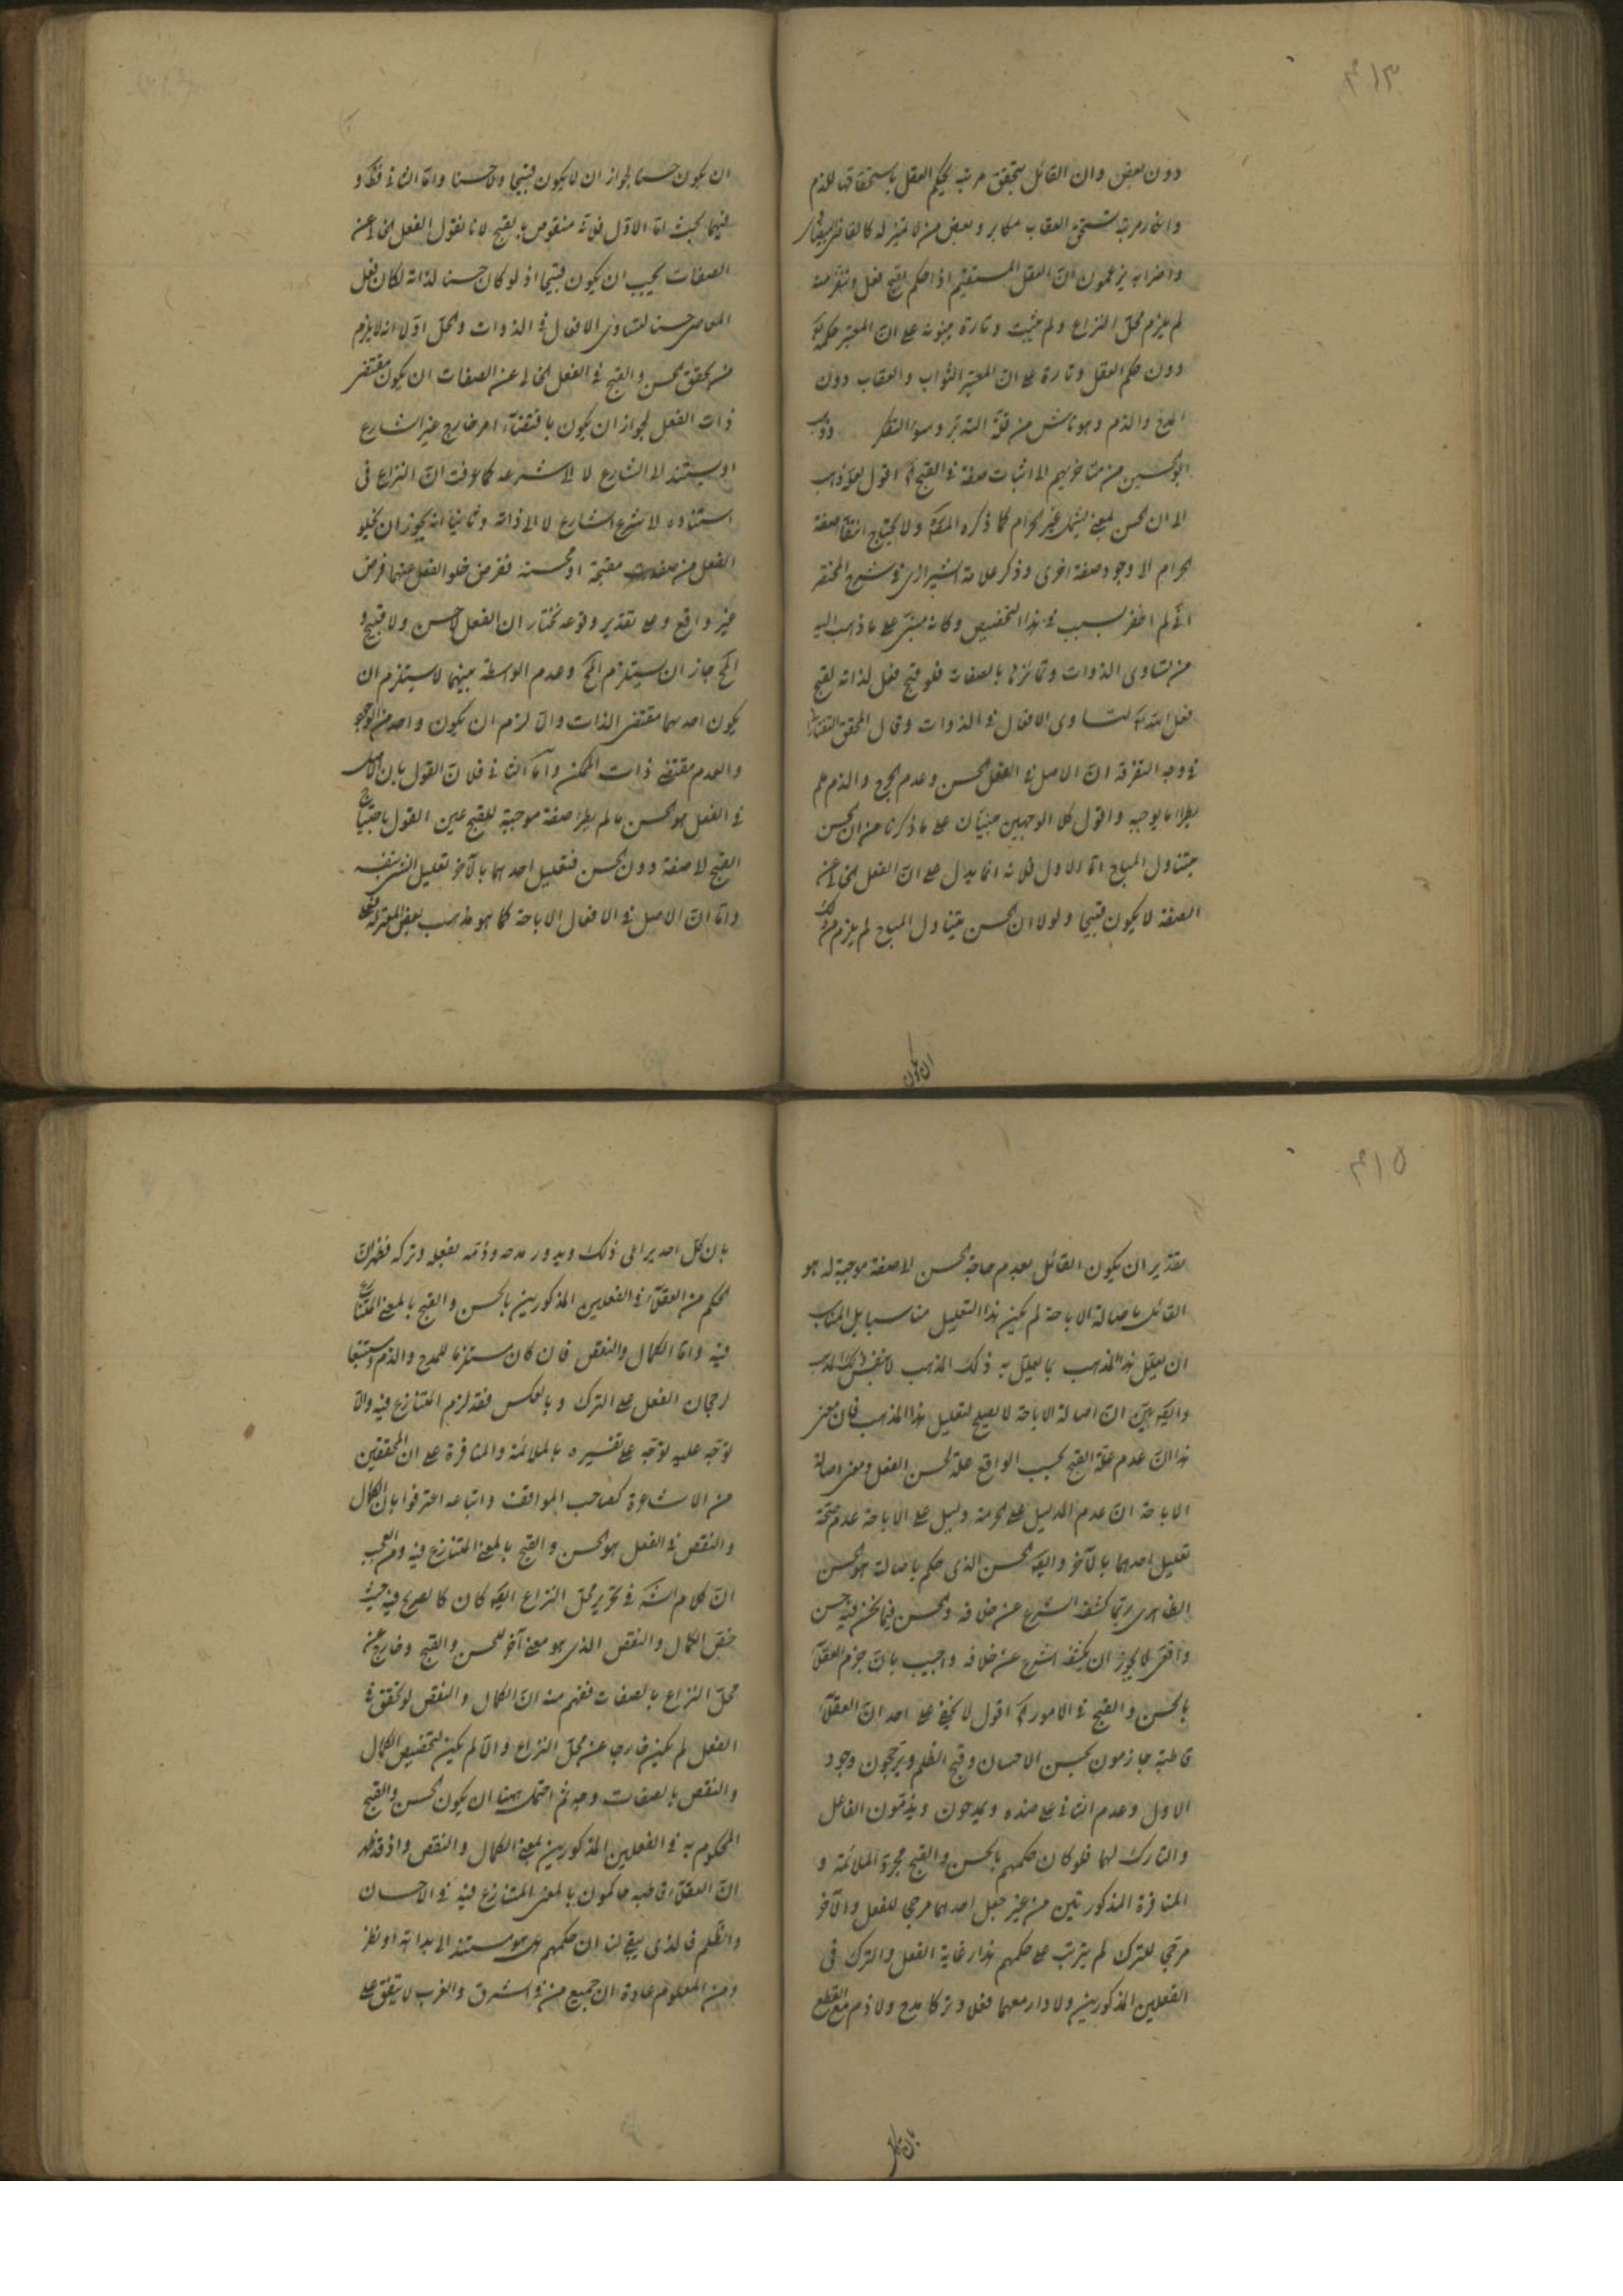 ٤١٣
دون بعض وان القائل بتحقق مرتبة يحكم العقل باستحقاقها للذم
وانكار مرتبة تستحق العقاب مكابر وبعض من لا تميز له كالقاضى البيضاوى
واضرابه يزعمون ان العقل المستقيم اذا حكم بقبح فعل وتنفر منه
لم يلزم محل النزاع ولم يثبت وتارة يبنونه على ان المعتبر حكمه تع
دون حكم العقل وتارة على ان المعتبر الثواب والعقاب دون
المدح والذم وهو ناش من قلة التدبر وسوء التفكر وذهب
ابو الحسين من متاخريهم الى اثبات صفة فى القبيح اه اقول لعله ذهب
الى ان الحسن بمعنى يشمل غير الحرام كما ذكره المص ولا يحتاج انتفاء صفة
الحرام الى وجود صفة اخرى وذكر علامة الشيرازى فى شرح المختصر
انى لم اظفر بسبب فى هذا التخصيص وكانه مبنى على ما ذهب اليه
من تساوى الذوات وتمايزها بالصفات فلو قبح فعل لذاته لقبح
فعل الله تع لتساوى الافعال فى الذوات وقال المحقق التفتازانى
فى وجه التفرقة ان الاصل فى الفعل الحسن وعدم الحرج والذم ما لم
يطرأ ما يوجبه واقول كلا الوجهين مبنيان على ما ذكرنا من ان الحسن
يتناول المباح اما الاول فلانه انما يدل على ان الفعل الخالى عن
الصفة لا يكون قبيحا ولولا ان الحسن يتناول المباح لم يلزم من ذلك
ان يكون
ان يكون حسنا لجواز ان لا يكون قبيحا ولا حسنا واما الثانى فظ و
فيهما بحث اما الاول فلانه منقوض بالقبح لانا نقول الفعل الخالى عن
الصفات يجب ان يكون قبيحا اذ لو كان حسنا لذاته لكان فعل
المعاصى حسنا لتساوى الافعال فى الذوات والحل اولا انه لا يلزم
من تحقق الحسن والقبح فى الفعل الخالى عن الصفات ان يكون مقتضى
ذات الفعل لجواز ان يكون باقتضاء امر خارج غير الشارع
او يستند الى الشارع لا الى شرعه كما عرفت ان النزاع فى
استناده الى شرع الشارع لا الى ذاته وثانيا انه يجوز ان يخلو
الفعل من صفات مقبحة او محسنة ففرض خلو الفعل عنهما فرض
غير واقع وعلى تقدير وقوعه نختار ان الفعل لا حسن ولا قبيح و
المح جاز ان يستلزم المح وعدم الواسطة بينهما لا يستلزم ان
يكون احدهما مقتضى الذات والا لزم ان يكون واحد من الوجود
والعدم مقتضى ذات الممكن واما الثانى فلان القول بان الاصل
فى الفعل هو الحسن ما لم يطرأ صفة موجبة للقبح عين القول باحتياج
القبح الى صفة دون الحسن فتعليل احدهما بالآخر تعليل الشئ بنفسه
واما ان الاصل فى الافعال الاباحة كما هو مذهب بعض المعتزلة فعلى
٤١٥
تقدير ان يكون القائل بعدم حاجة الحسن الى صفة موجبة له هو
القائل باصالة الاباحة لم يكن هذا التعليل مناسبا بل المناسب
ان يعلل هذا المذهب بما يعلل به ذلك المذهب لا بنفس ذلك المذهب
وايضا بين ان اصالة الاباحة لا يصلح لتعليل هذا المذهب فان معنى
هذا ان عدم علة القبح بحسب الواقع علة لحسن الفعل ومعنى اصالة
الاباحة ان عدم الدليل على الحرمة دليل على الاباحة عدم صحة
تعليل احدهما بالآخر وايضا الحسن الذى حكم باصالته هو الحسن
الظاهرى ربما كشف الشرع عن خلافه والحسن فيما نحن فيه حسن
واقعى لا يجوز ان يكشف الشرع عن خلافه واجيب بان جزم العقلاء
بالحسن والقبح فى الامور اه اقول لا يخفى على احد ان العقلاء
قاطبة جازمون بحسن الاحسان وقبح الظلم ويرجحون وجود
الاول وعدم الثانى على ضده ويمدحون ويذمون الفاعل
والتارك لهما فلو كان حكمهم بالحسن والقبح مجرد الملائمة و
المنافرة المذكورتين من غير جعل احدهما مرجحا للفعل والآخر
مرجحا للترك لم يترتب على حكمهم هذا رعاية الفعل والترك فى
الفعلين المذكورين ولا دار معهما فعلا وتركا مدح ولا ذم مع القطع
بان كل
بان كل احد يراعى ذلك ويدور مدحه وذمه بفعله وتركه فظهر ان
الحكم من العقلاء فى الفعلين المذكورين بالحسن والقبح بالمعنى المتنازع
فيه واما الكمال والنقص فان كان مستلزما للمدح والذم ومستتبعا
لرجحان الفعل على الترك وبالعكس فقد لزم المتنازع فيه والا
توجه عليه توجه على تفسيره بالملائمة والمنافرة على ان المحققين
من الاشاعرة كصاحب المواقف واتباعه اعترفوا بان الكمال
والنقص فى الفعل هو الحسن والقبح بالمعنى المتنازع فيه ومن العجب
ان كلام الش فى تحرير محل النزاع ايضا كان كالصريح فيه حيث
خص الكمال والنقص الذى هو معنى آخر للحسن والقبح وخارج عن
محل النزاع بالصفات ففهم منه ان الكمال والنقص لو تحقق فى
الفعل لم يكن خارجا عن محل النزاع والا لم يكن لتخصيص الكمال
والنقص بالصفات وجه ثم احتمل ههنا ان يكون الحسن والقبح
المحكوم به فى الفعلين المذكورين بمعنى الكمال والنقص واذ قد ظهر
ان العقلاء قاطبة حاكمون بالمعنى المتنازع فيه فى الاحسان
والظلم فالذى يبقى لنا ان حكمهم هل هو مستند الى بداهة او نظر
ومن المعلوم عادة ان جميع من فى الشرق والغرب لا يتفق على